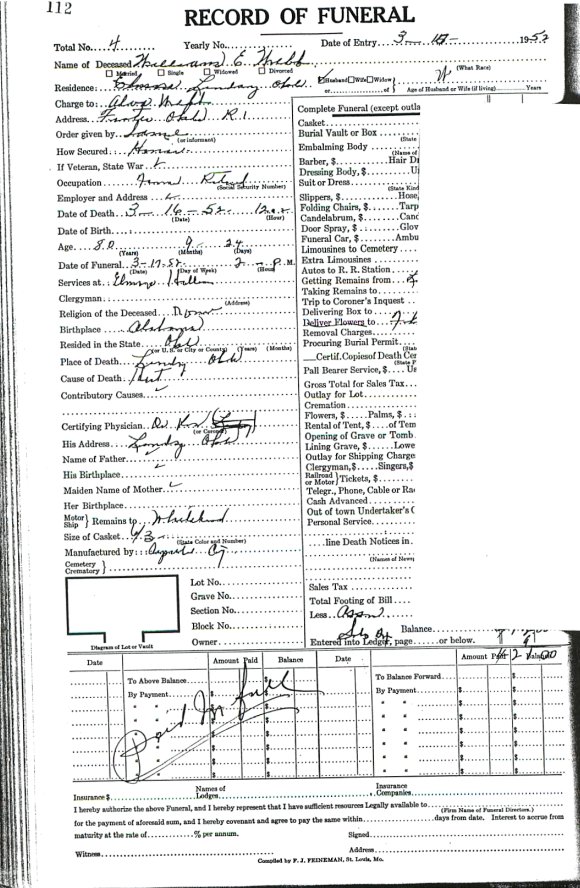 112
RECORD OF FUNERAL
Total No. 4 Yearly No. Date of Entry 3- - 1952
Name of Deceased William E. Webb
Married Single Widowed Divorced (What Race)
Residence: Lindsay Okla Husband Wife Widow W
or of Age of Husband or Wife (if living) Years
Charge to: Webb
Address. Okla R.1
Order given by Same
(or informant)
How Secured
If Veteran, State War
Occupation Farm Retired
(Social Security Number)
Employer and Address
Date of Death 3- 16- 52
(Date) (Hour)
Date of Birth
Age 80 9 24
(Years) (Months) (Days)
Date of Funeral 3-17-52 2 P M
(Date) (Day of Week) (Hour)
Services at:
Clergyman
(Address)
Religion of the Deceased None
Birthplace Alabama
Resided in the State Okla
(or U. S. or City or County) (Years) (Months)
Place of Death Lindsay Okla
Cause of Death
Contributory Causes
Certifying Physician Dr
(or Coroner)
His Address Lindsay Okla
Name of Father
His Birthplace
Maiden Name of Mother
Her Birthplace
Motor Ship } Remains to Whitebead
Size of Casket 6/3
(State Color and Number)
Manufactured by:
Cemetery Crematory }
Diagram of Lot or Vault
Lot No.
Grave No.
Section No.
Block No.
Owner
Complete Funeral (except outla
Casket
Burial Vault or Box
(State
Embalming Body
(Name of
Barber, $ Hair Dr
Dressing Body, $
Suit or Dress
(State Kind
Slippers, $ Hose,
Folding Chairs, $ Tarp
Candelabrum, $ Cand
Door Spray, $ Glov
Funeral Car, $ Ambu
Limousines to Cemetery
Extra Limousines
Autos to R. R. Station
Getting Remains from
Taking Remains to
Trip to Coroner's Inquest
Delivering Box to
Deliver Flowers to
Removal Charges
Procuring Burial Permit
(State
Certif. Copies of Death Cer
(State P
Pall Bearer Service, $ Us
Gross Total for Sales Tax
Outlay for Lot
Cremation
Flowers, $ Palms, $
Rental of Tent, $ of Tem
Opening of Grave or Tomb
Lining Grave, $ Lowe
Outlay for Shipping Charge
Clergyman, $ Singers, $
Railroad or Motor } Tickets, $
Telegr., Phone, Cable or Ra
Cash Advanced
Out of town Undertaker's C
Personal Service
line Death Notices in
(Names of News
Sales Tax
Total Footing of Bill
Less Assn
Balance
Entered into Ledger, page or below.
Date Amount Paid Balance Date Amount Paid Balance
To Above Balance $ $ To Balance Forward $
By Payment $ $ By Payment $ $
Paid In full
Insurance $ Names of Lodges Insurance Companies
I hereby authorize the above Funeral, and I hereby represent that I have sufficient resources Legally available to
(Firm Name of Funeral Directors.)
for the payment of aforesaid sum, and I hereby covenant and agree to pay the same within days from date. Interest to accrue from
maturity at the rate of % per annum. Signed
Witness Address
Compiled by F. J. FEINEMAN, St. Louis, Mo.